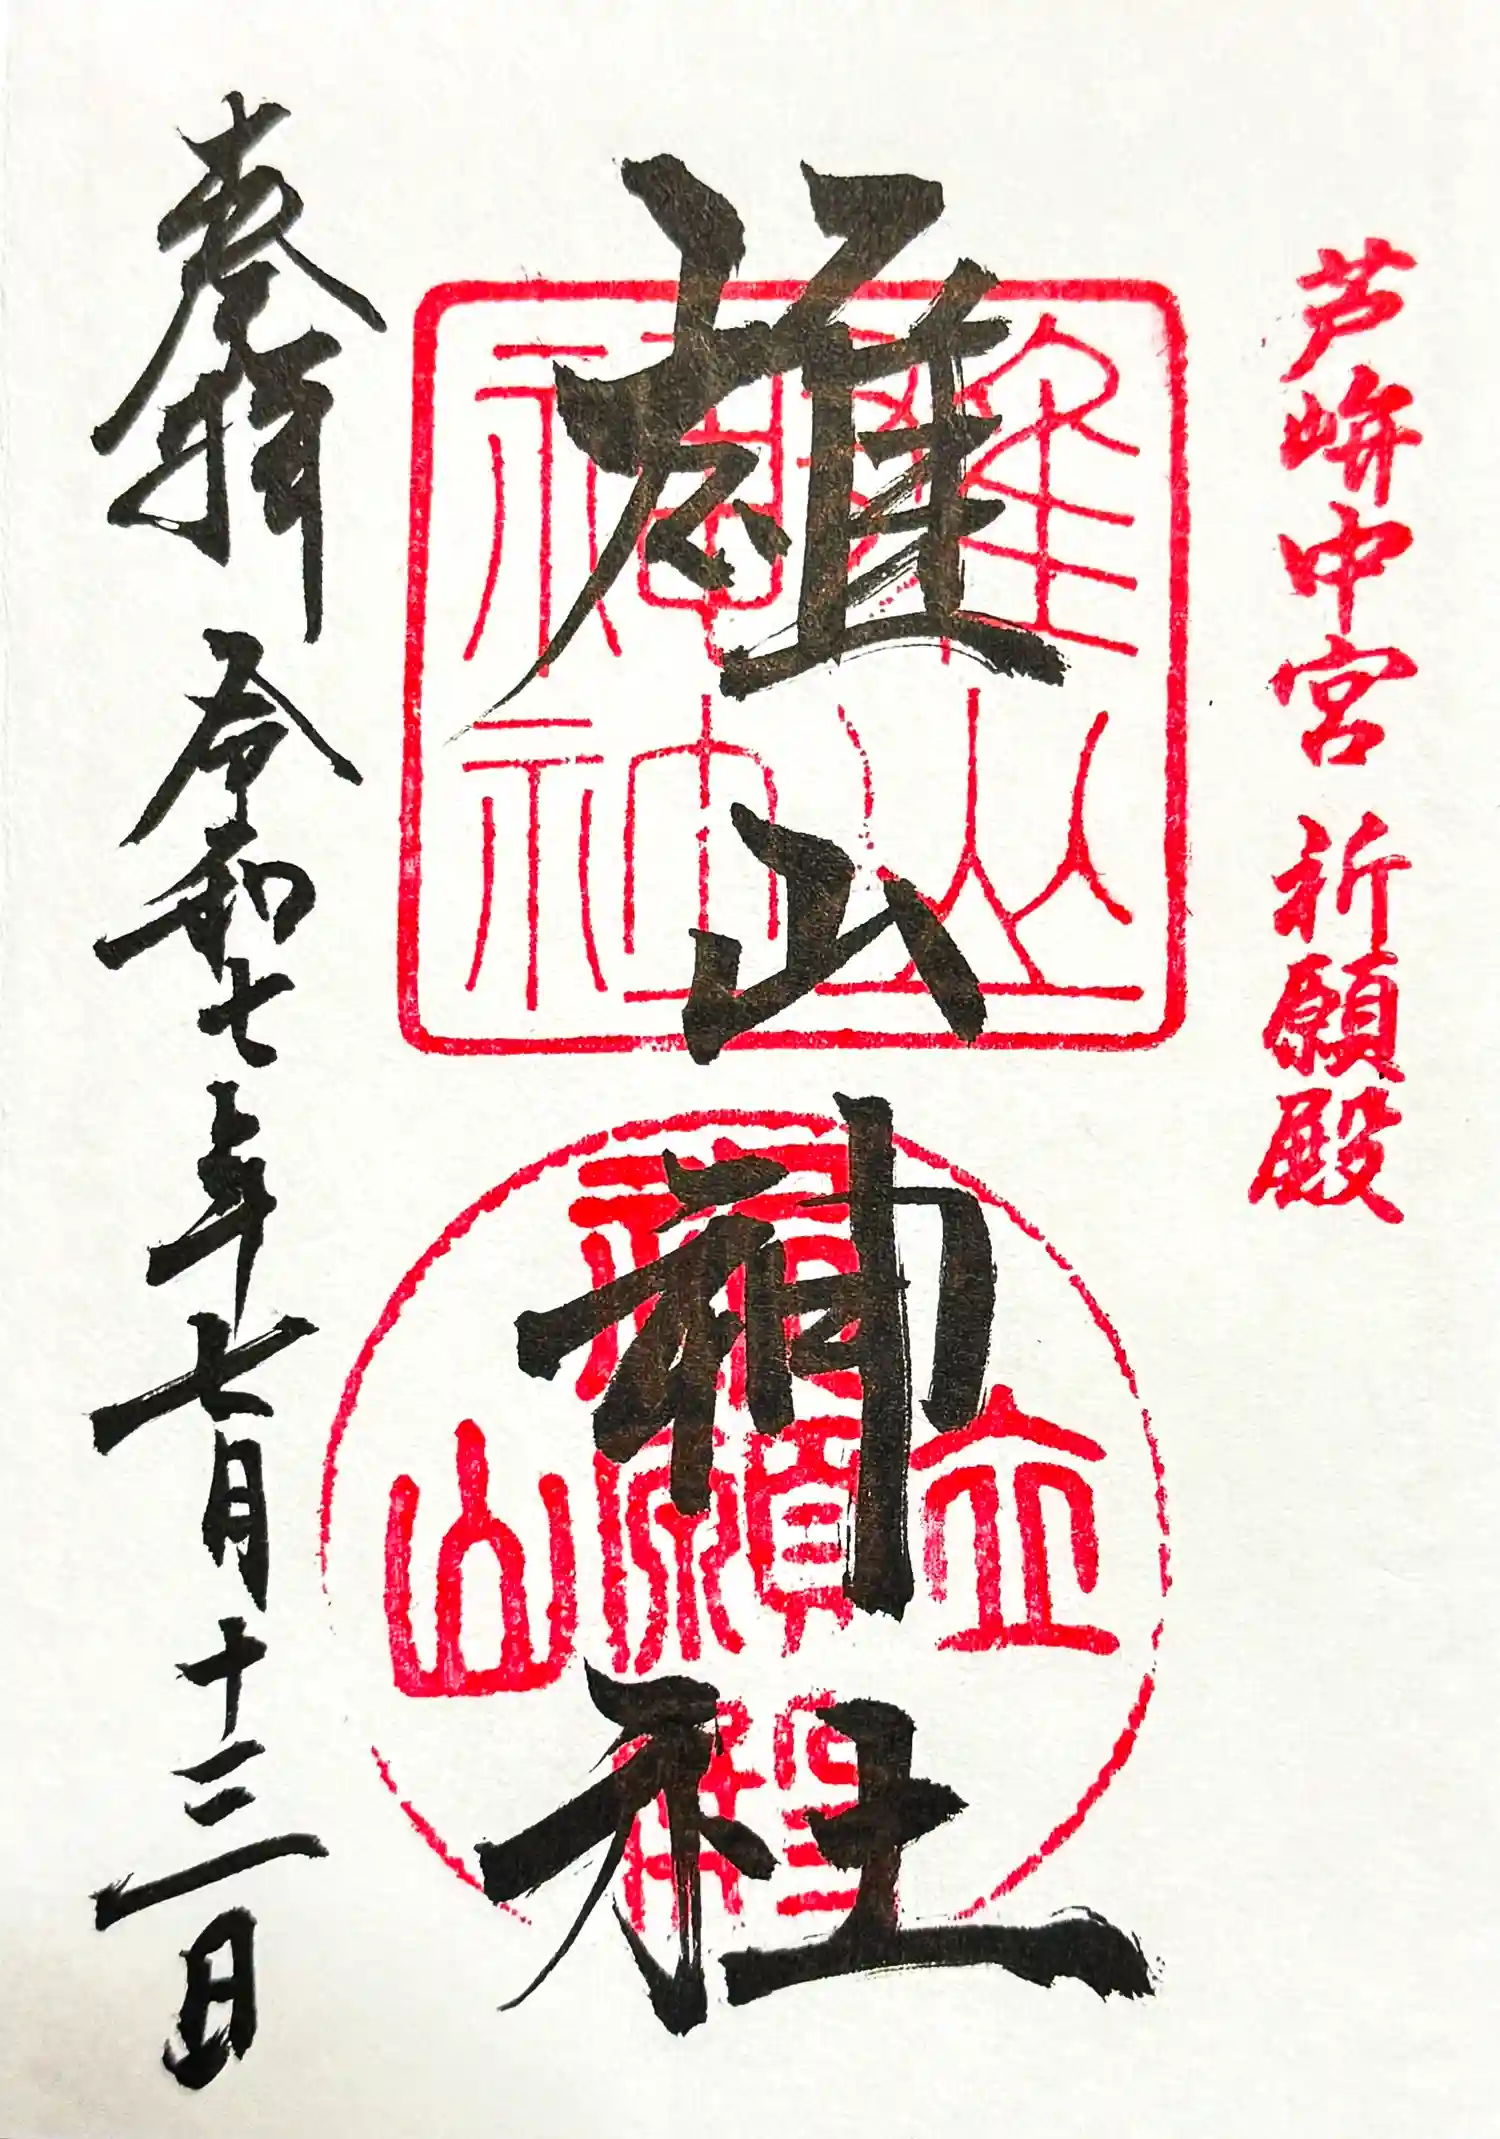 芦峅中宮 祈願殿
雄山神社
雄山神社
立山
祈願殿
奉拝 令和七年七月十三日